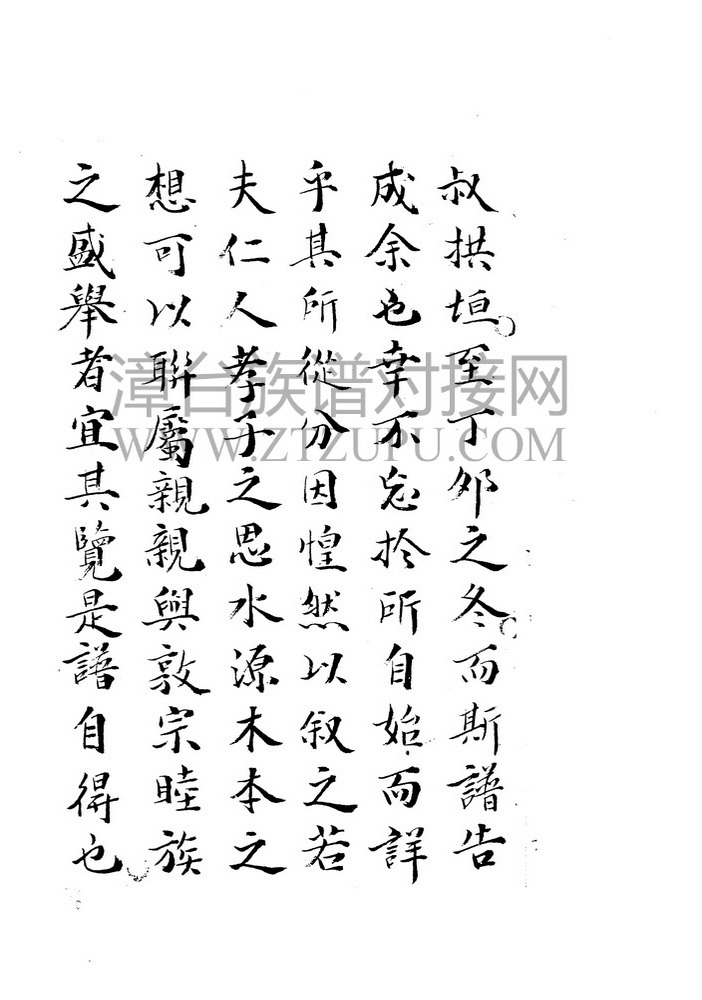 叔拱垣至丁夘之冬而斯譜告
成余也幸不忘扵所自始而詳
乎其所從分因惶然以叙之若
夫仁人孝子之思水源木本之
想可以聯屬親親興敦宗睦族
之盛舉者宜其覽是譜自得也
漳台族谱对接网
WWW.ZTZUPU.COM